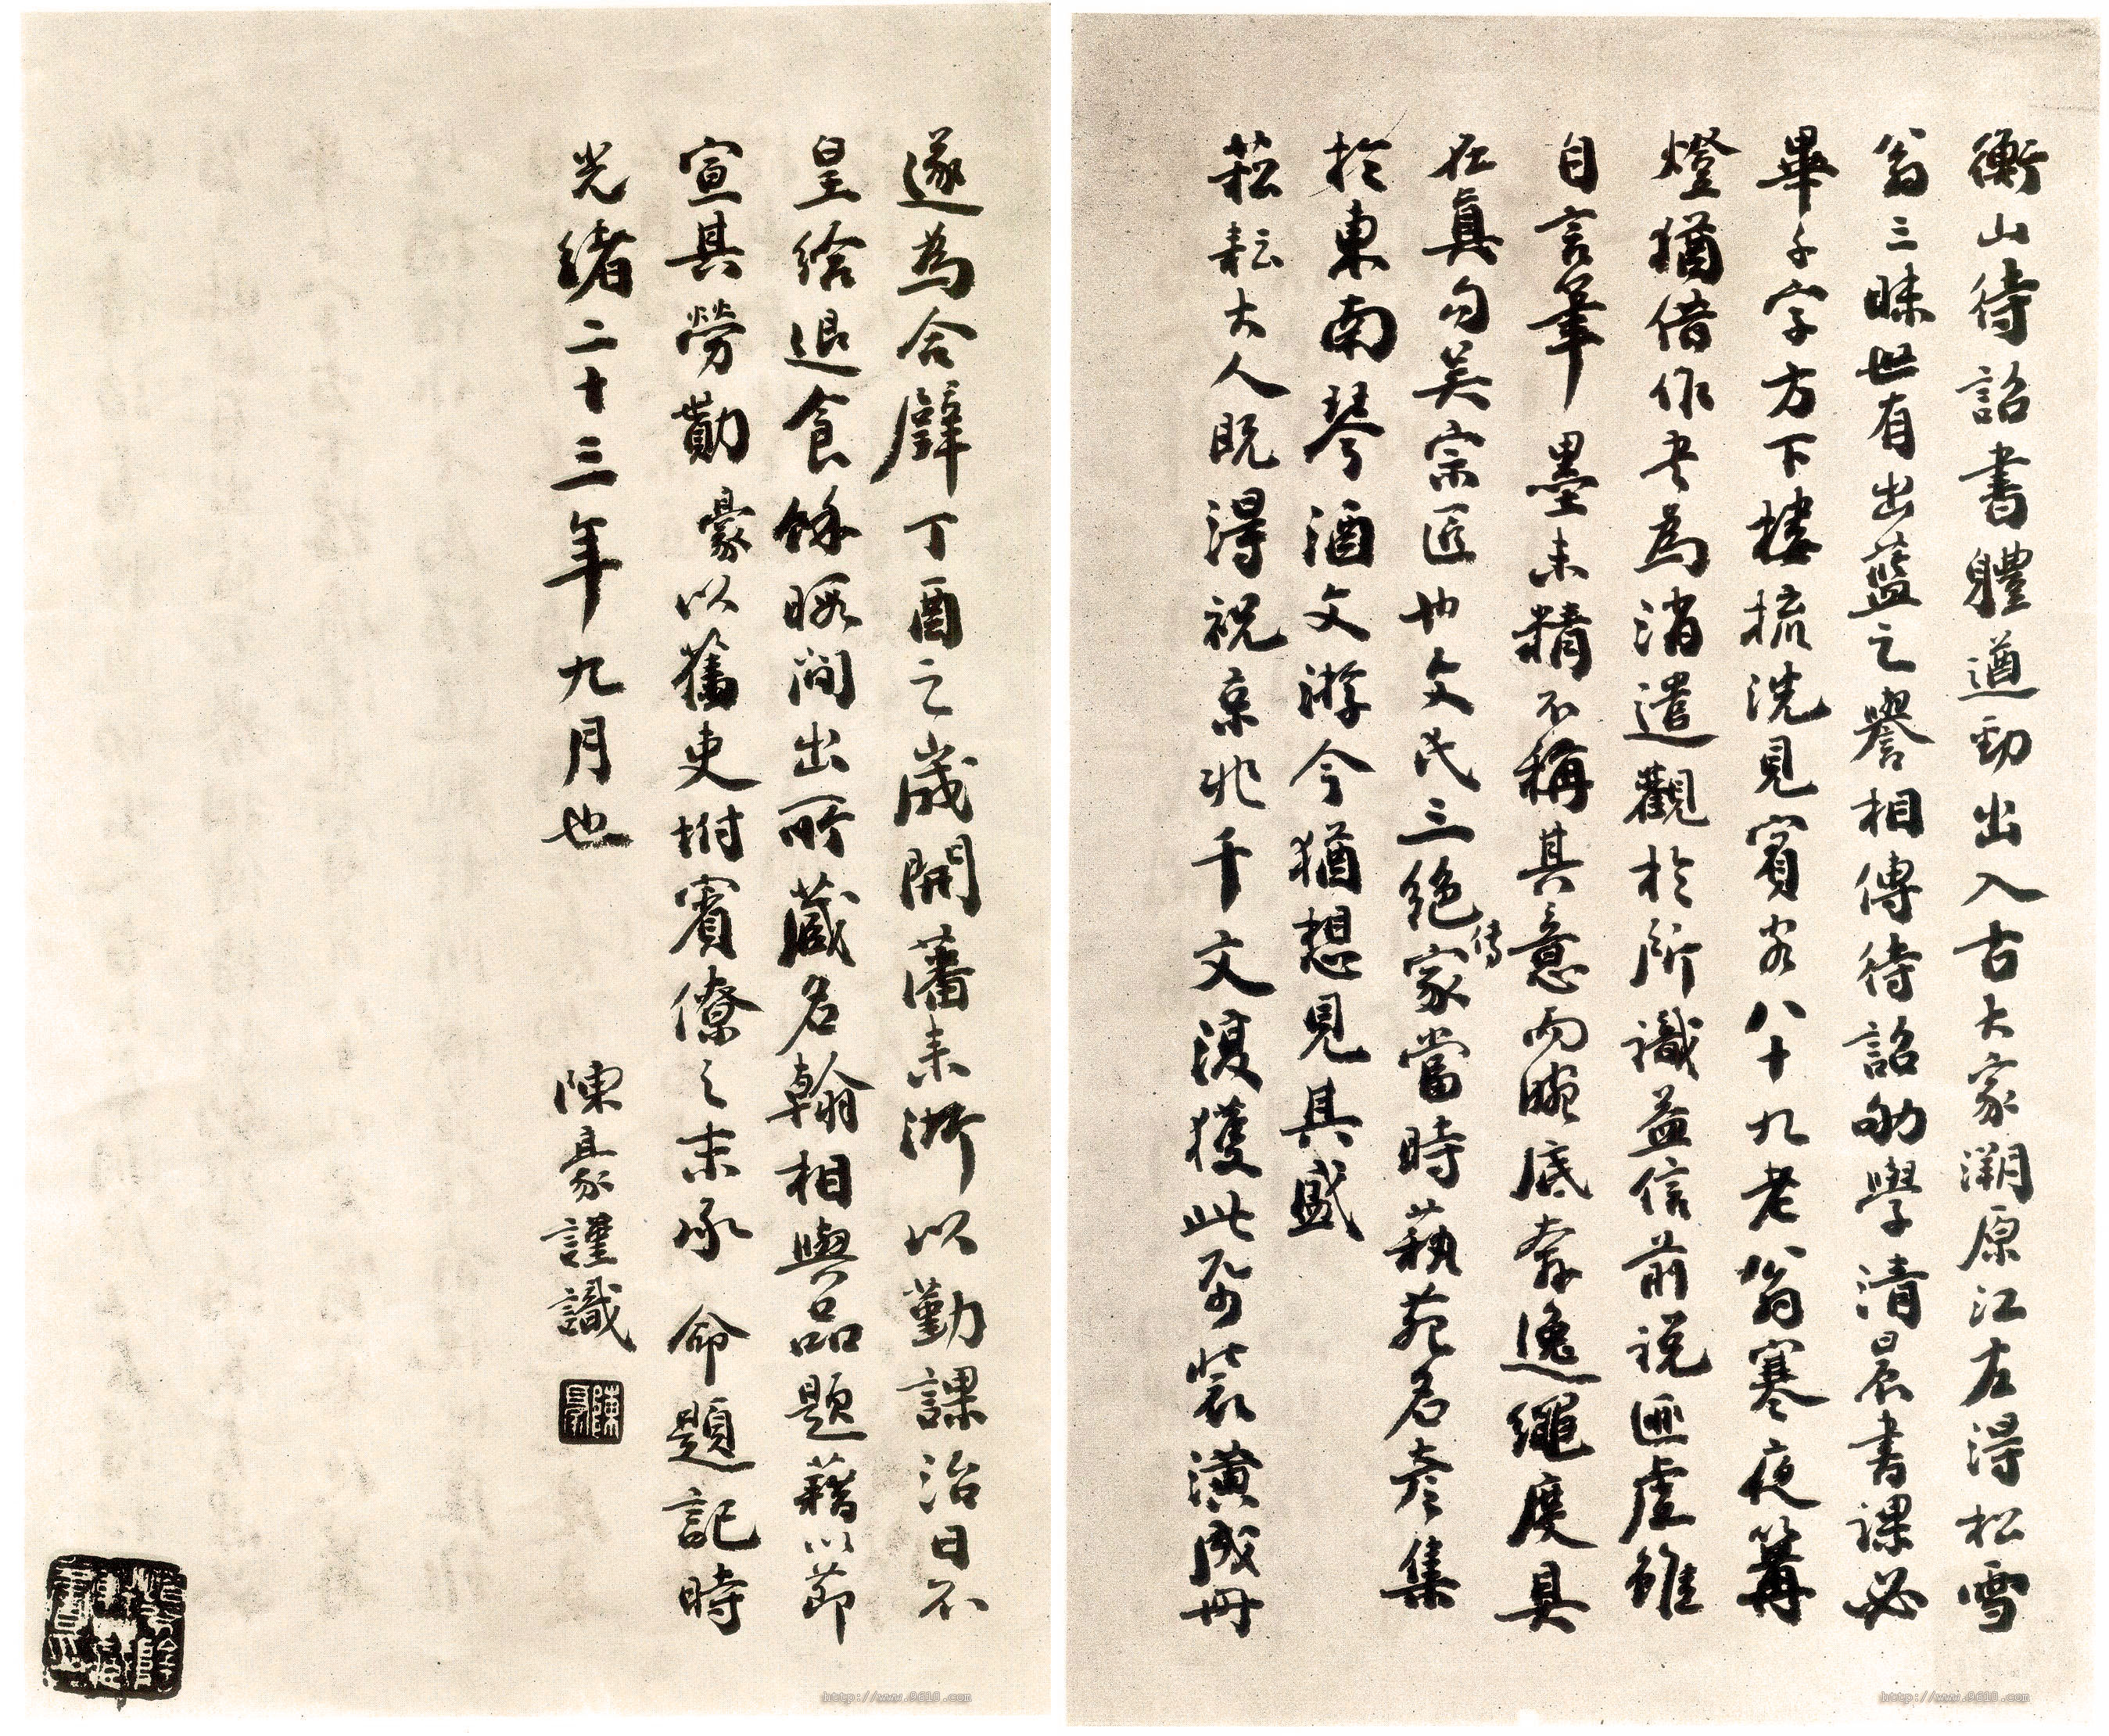 衡山待詔書體遒勁出入古大家溯原江左得松雪
翁三昧世有出藍之譽相傳待詔劬學清晨書課必
畢千字方下樓梳洗見賓客八十九老翁寒夜篝
燈猶借作書為消遣觀於所識益信前說匪虛雖
自言筆墨未精不稱其意而腕底奔逸繩度具
在真句吳宗匠也文氏三絕傳家當時藝苑名彥集
於東南琴酒文游今猶想見其盛
菘耘大人既得祝京兆千文復獲此受裝潢成冊
遂為合璧丁酉之歲開藩來浙以勤課治日不
皇給退食餘暇間出所藏名翰相與品題藉以節
宣其勞勩豪以舊吏坿賓僚之末承命題記時
光緒二十三年九月也
陳豪謹識
陳豪
http://www.9610.com
http://www.9610.com